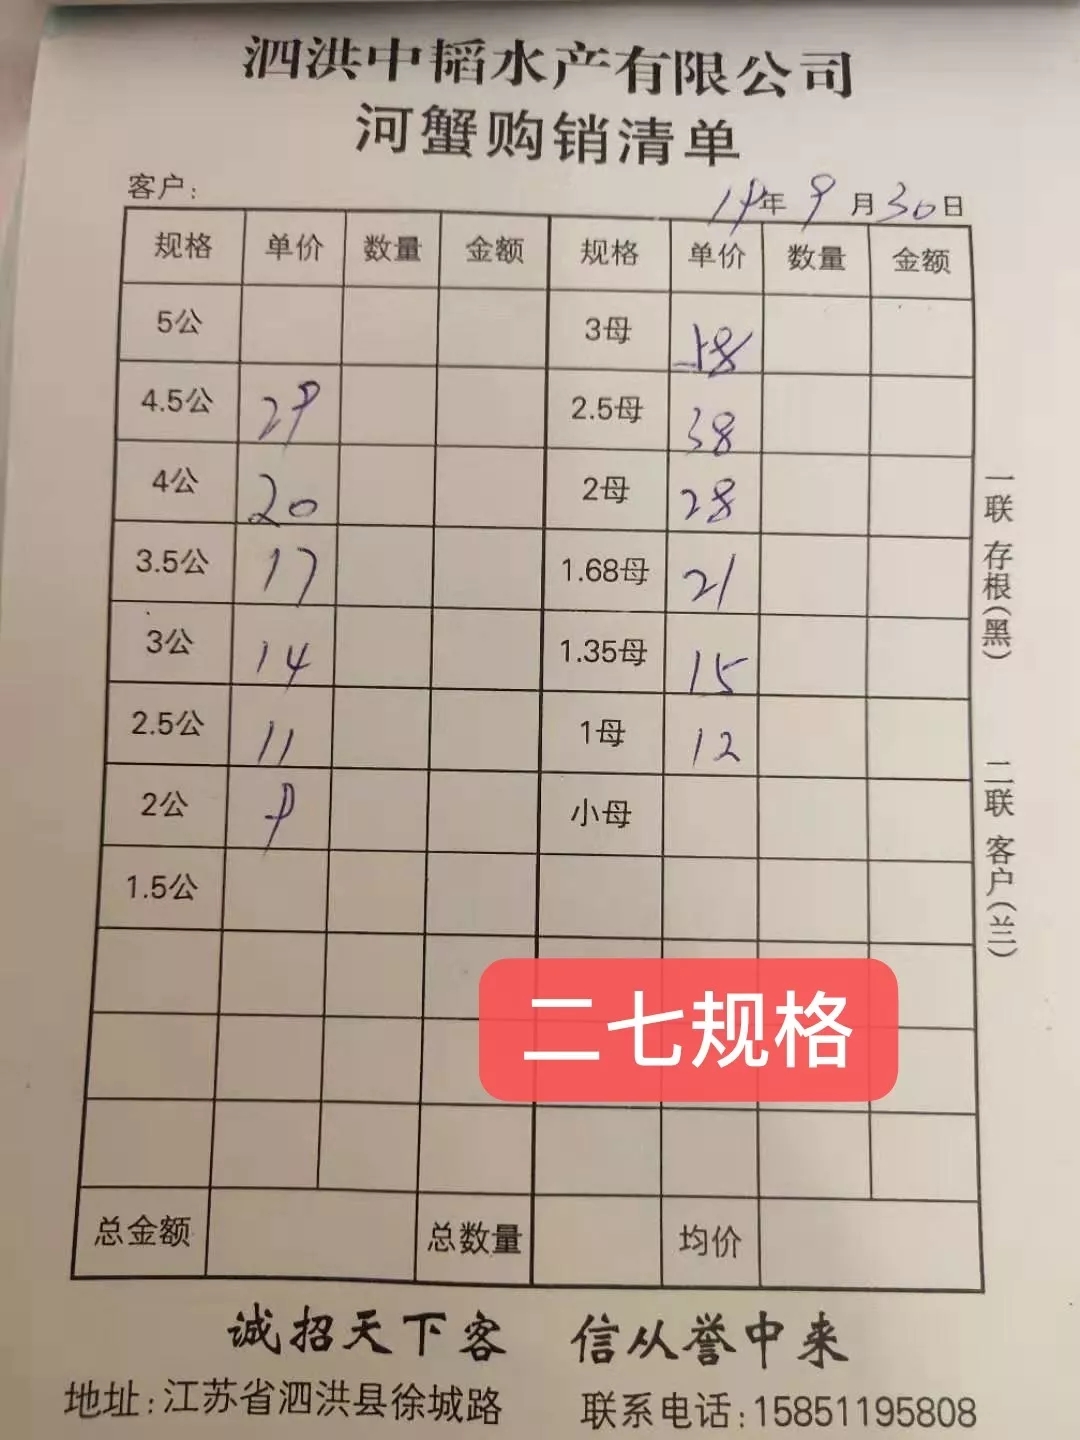 泗洪中韬水产有限公司
河蟹购销清单
客户: 19年9月30日
规格 单价 数量 金额 规格 单价 数量 金额
5公 3母 58
4.5公 29 2.5母 38
4公 20 2母 28
3.5公 17 1.68母 21
3公 14 1.35母 15
2.5公 11 1母 12
2公 9 小母
1.5公
二七规格
总金额 总数量 均价
一联 存根(黑) 二联 客户(兰)
诚招天下客 信从誉中来
地址:江苏省泗洪县徐城路 联系电话:15851195808